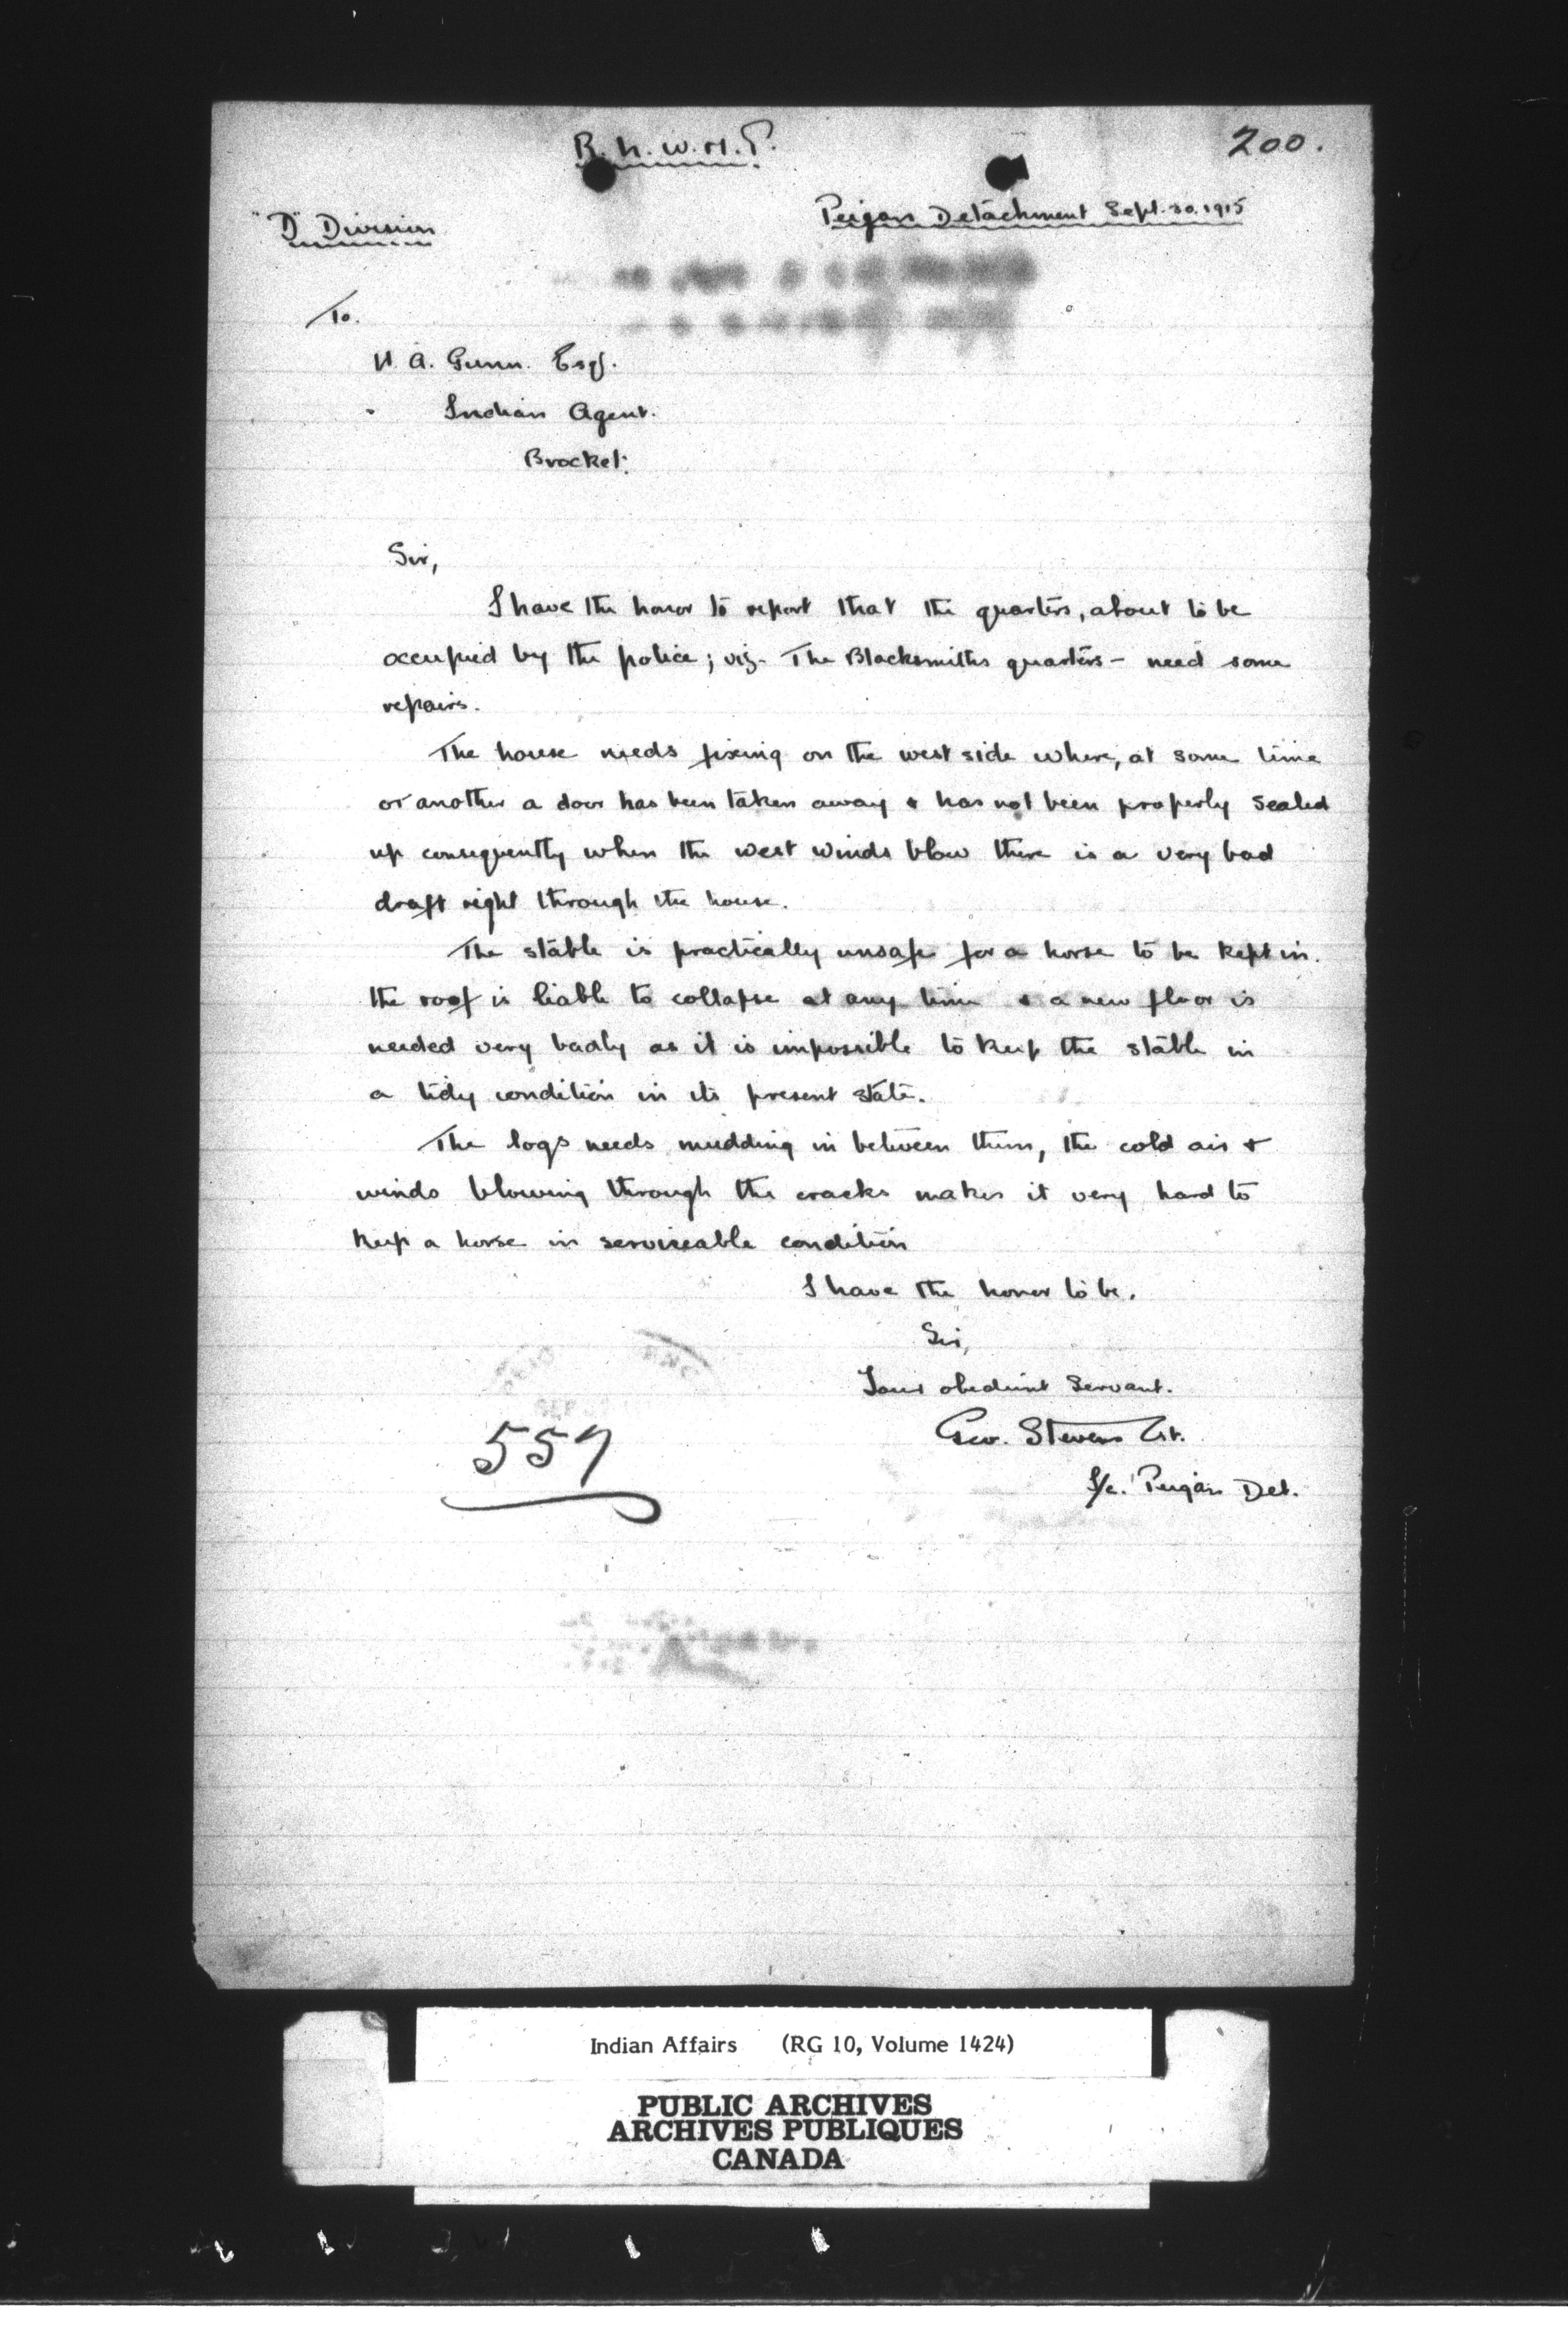 R.N.W.M.P.
200.
"D" Division
Peigan Detachment Sept. 30. 1915
To.
H. A. Gunn. Esq.
Indian Agent.
Brocket.
Sir,
I have the honor to report that the quarters, about to be
occupied by the police; viz. The Blacksmiths quarters - need some
repairs.
The house needs fixing on the west side where, at some time
or another a door has been taken away & has not been properly sealed
up consequently when the west winds blow there is a very bad
draft right through the house.
The stable is practically unsafe for a horse to be kept in.
the roof is liable to collapse at any time & a new floor is
needed very badly as it is impossible to keep the stable in
a tidy condition in its present state.
The logs needs mudding in between them, the cold air &
winds blowing through the cracks makes it very hard to
keep a horse in serviceable condition
I have the honor to be.
Sir,
Your obedient Servant.
Geo. Stevens Cst.
I/c. Peigan Det.
557
Indian Affairs (RG 10, Volume 1424)
PUBLIC ARCHIVES
ARCHIVES PUBLIQUES
CANADA